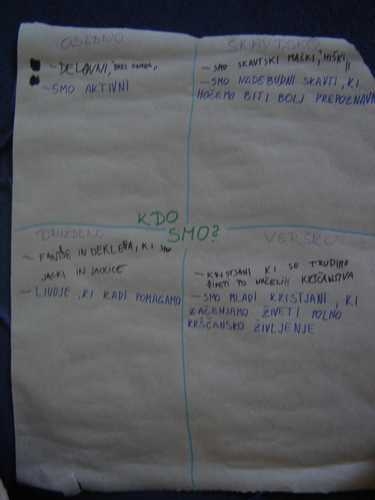 OSEBNO
- DELOVNI, "BREZ
- SMO AKTIVNI
SKAVTSKO
- SMO SKAVTSKI MAČKI, "MIŠKI"
- SMO NADEBUDNI SKAVTI, KI
HOČEMO BITI BOLJ PREPOZNAVNI
KDO
SMO?
DRUŽBENO
- FANTJE IN DEKLETA, KI SMO
JACKI IN JACKICE
- LJUDJE, KI RADI POMAGAMO
VERSKO
- KRISTJANI KI SE TRUDIMO
ŽIVETI PO NAČELIH KRŠČANSTVA
- SMO MLADI KRISTJANI, KI
ZAČENJAMO ŽIVETI POLNO
KRŠČANSKO ŽIVLJENJE